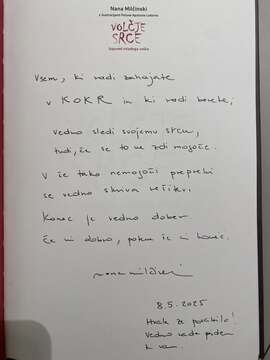 Nana Milčinski
z ilustracijami Polone Apolonie Lodorna
VOLČJE
SRCE
Izpovedi mladega volka
Vsem, ki radi zahajate
v KOKR in ki radi berete,
vedno sledi svojemu srcu,
tudi, če se to ne zdi mogoče.
V še tako nemogoči prepreki
se vedno skriva rešitev.
Konec je vedno dober
Če ni dobro, potem še ni konec.
nana milčinski
8.5.2025
Hvala za povabilo!
Vedno rada pridem
k vam.